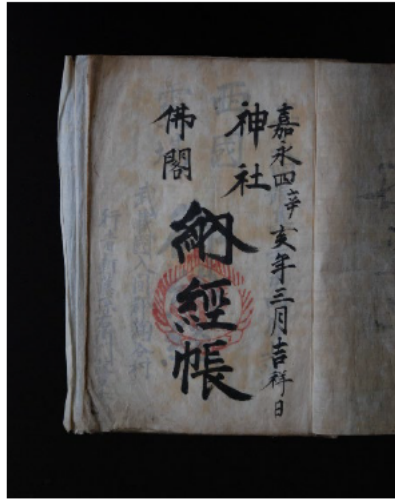 嘉永四辛亥年三月吉祥日
神社
佛閣
納經帳